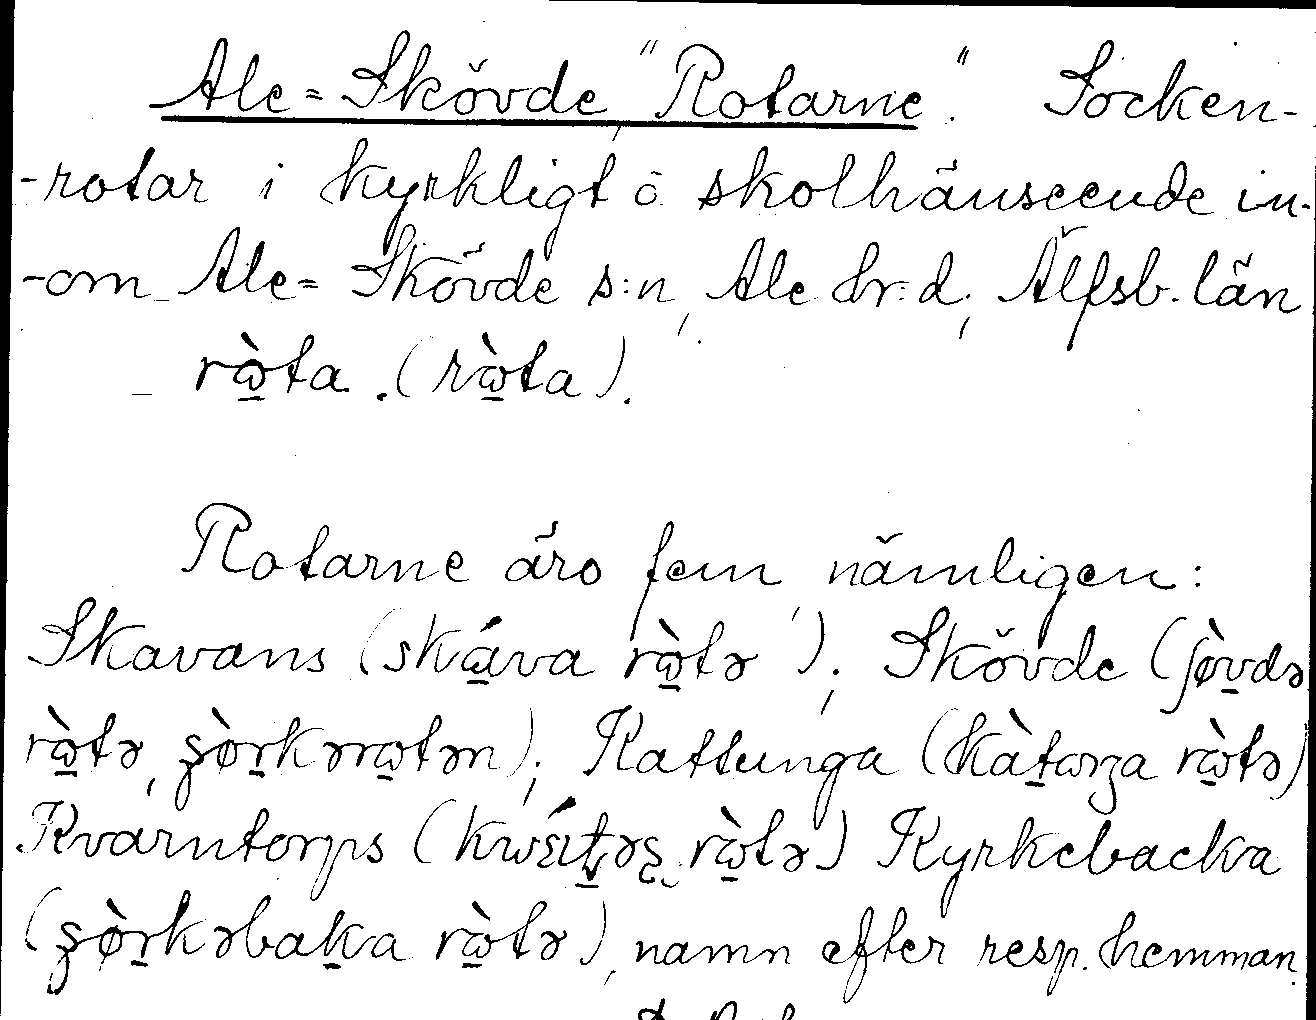 Ale=Skövde, "Rotarne". Socken-
-rotar i kyrkligt o. skolhänseende in-
-om Ale=Skövde s:n, Ale hr:d, Älfsb. län
rὼ̱ta. (rὼ̱ta).
Rotarne äro fem nämligen:
Skavans (skáva rὼ̱tə); Skövde (ʃø̀vdə
rὼ̱tə, kərrω̱tən); Kattunga (kàtωŋa rὼ̱tə)
Kvarntorps ( rὼ̱tə) Kyrkebacka
( rὼ̱tə), namn efter resp. hemman.